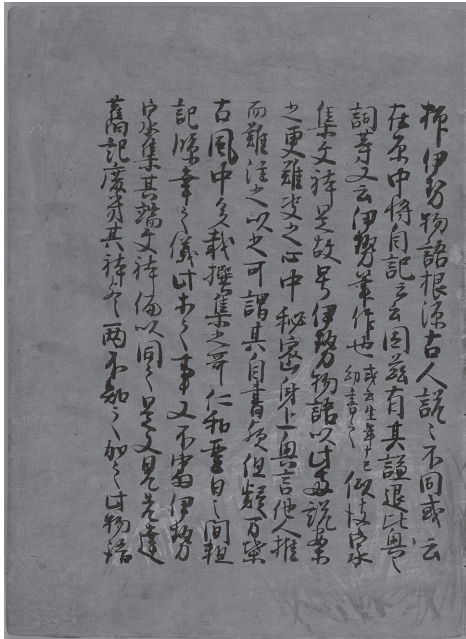 抑伊勢物語根源古人説々不同或云
在原中将自記之云々因茲有其謙退比興之
詞等又云伊勢筆作也 或云生年十七 幼書之 似彼家
集文体是故号伊勢物語以此両説案
之更難決之心中秘密身上興言他人推
而難注之以之可謂其自書歟但疑万葉
古風中多載撰集之哥仁和聖日之間粗
記臨幸之儀此等之事又不審伊勢
家集其端文体偏以同之是又見先達
舊記 其体 両不知之加之此物語